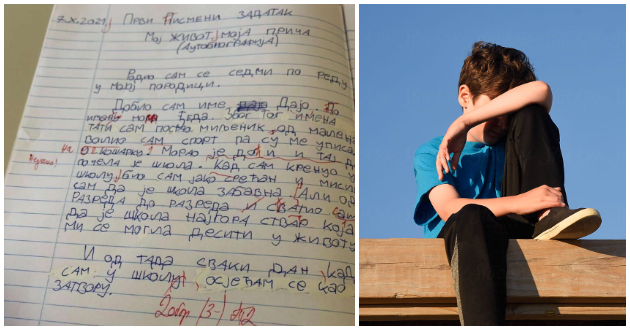 7.X.2021. Први писмени задатак
Мој живот, моја прича
(Аутобиографија)
Родио сам се седми по реду
у мојој породици.
Добио сам име Дајо. По
имену мога ђеда. Због тог имена
тати сам постао миљеник, од малена
волио сам спорт па су ме уписа
кошарку. Морао је доћи и тај д
почела је школа. Кад сам кренуо у
школу, био сам јако срећан и мисли
сам да је школа забавна. Али од
разреда до разреда сам
да је школа најгора ствар која
ми се могла десити у животу
И од тада сваки дан, кад
сам у школи, осјећам се као
затвору.
Добар (3-)